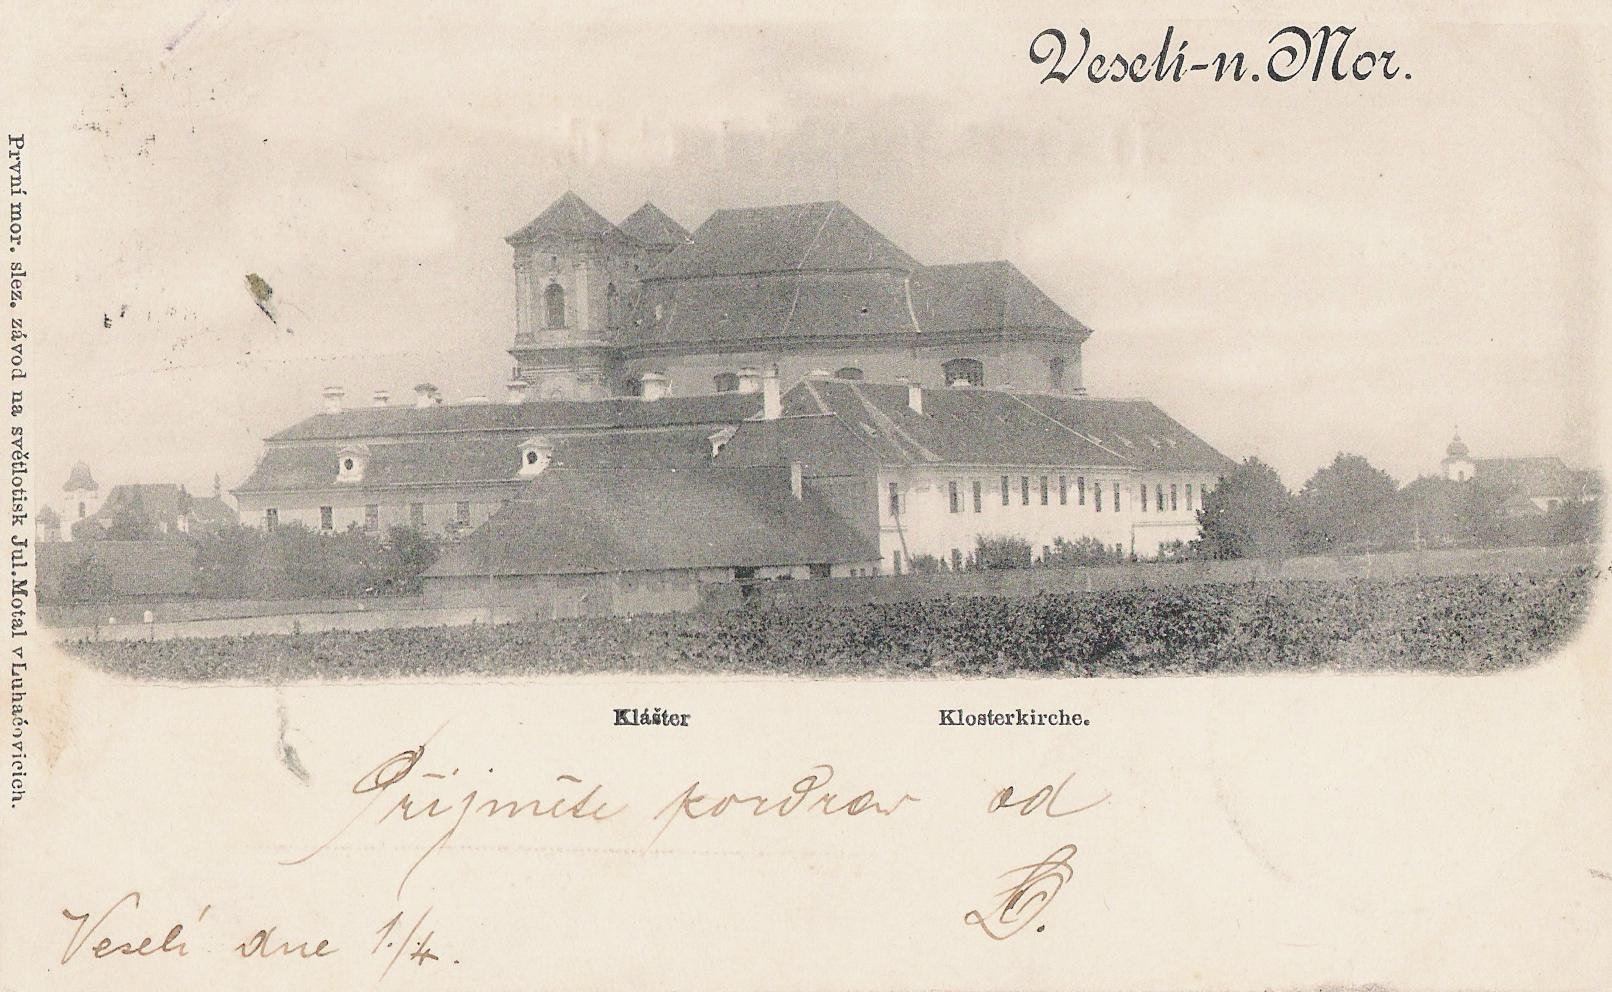 Veselí-n. Mor.
První mor. slez. závod na světlotisk Jul. Motal v Luhačovicích.
Klášter Klosterkirche.
Přijměte pozdrav od
Veselí dne 1./4.